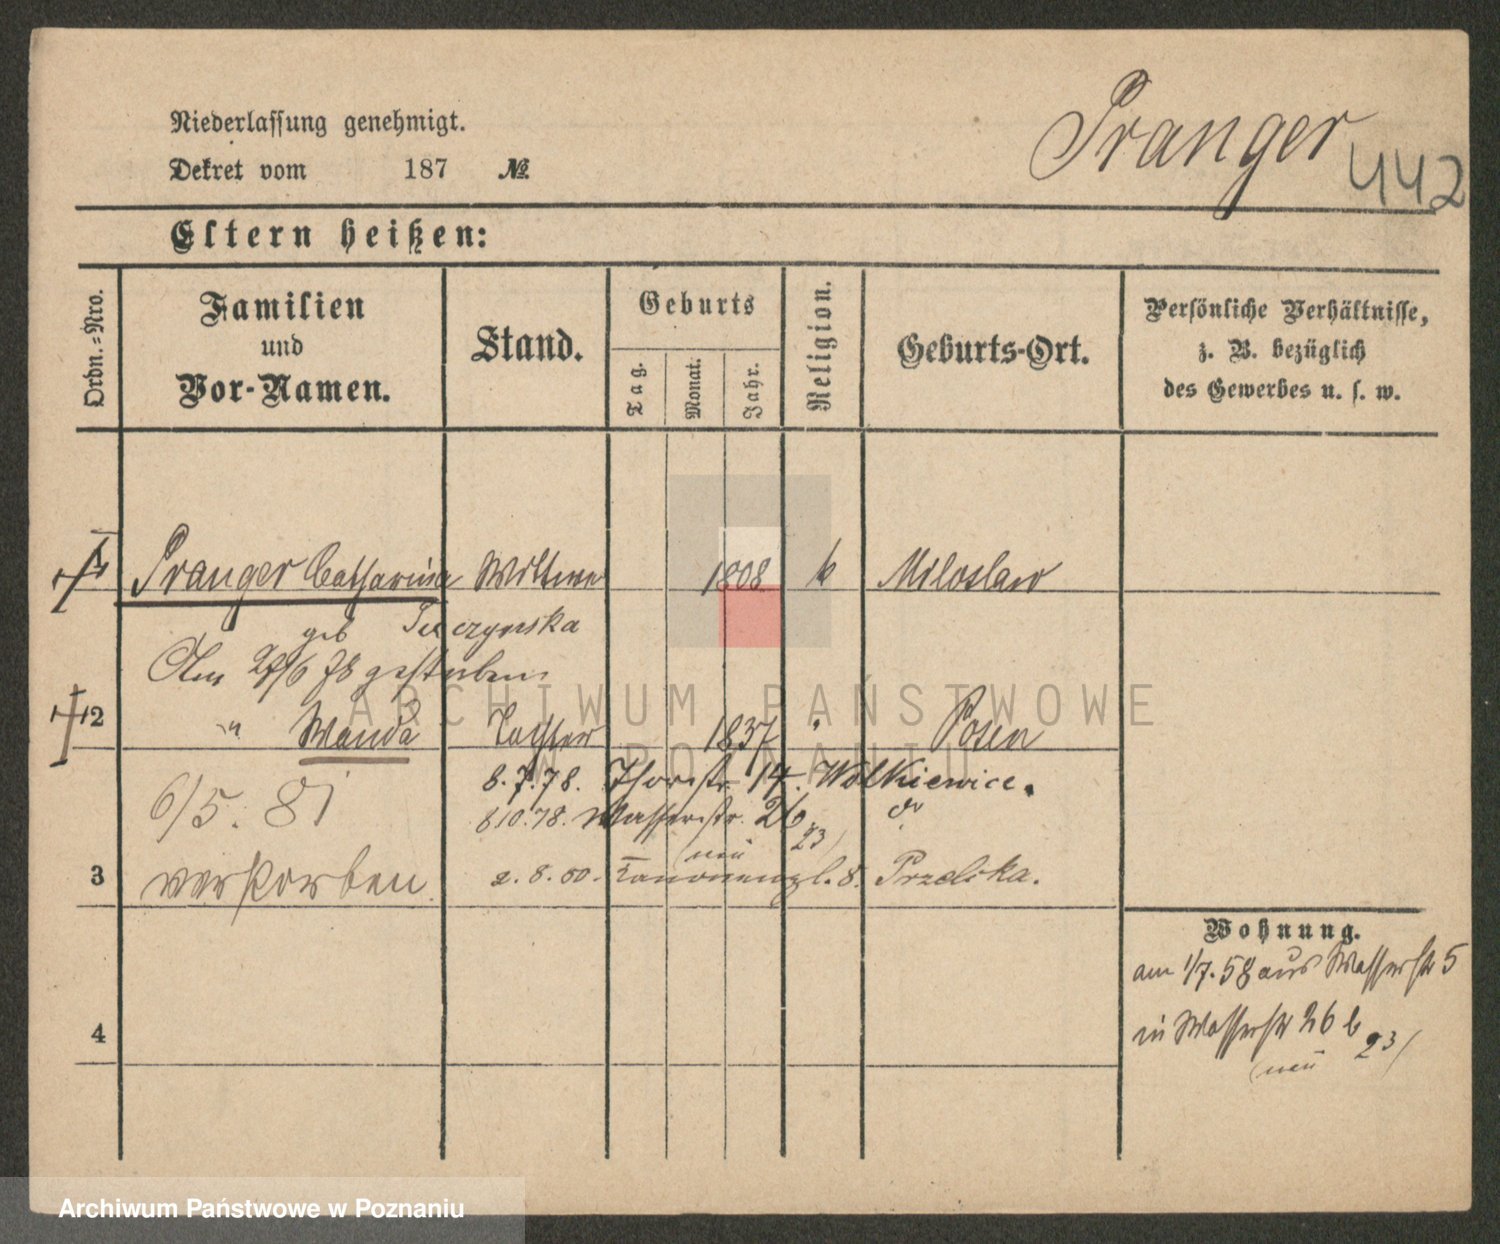 Pranger
442
Niederlassung genehmigt.
Dekret vom 187 №
Eltern heißen:
Ordn.=Nro.
Familien
und
Vor-Namen.
Stand.
Geburts
Tag.
Monat.
Jahr.
Religion.
Geburts-Ort.
Persönliche Verhältnisse,
z. B. bezüglich
des Gewerbes u. s. w.
1 Pranger Catharina Wittwe 1808 k Miloslaw
geb
Am 27/6 78 gestorben
2 " Wanda Tochter 1837 " Posen
8.7.78. Thorstr. 14. Wolkiewicz.
6/5. 81
8.10.78. Wasserstr. 26 do
(neu 23)
3 verstorben.
2.8.80. Kanonenpl. 8. Przelska.
Wohnung.
am 1/7. 58 aus Wasserstr 5
in Wasserstr 26 b
(neu 23)
4
ARCHIWUM PAŃSTWOWE
W POZNANIU
Archiwum Państwowe w Poznaniu